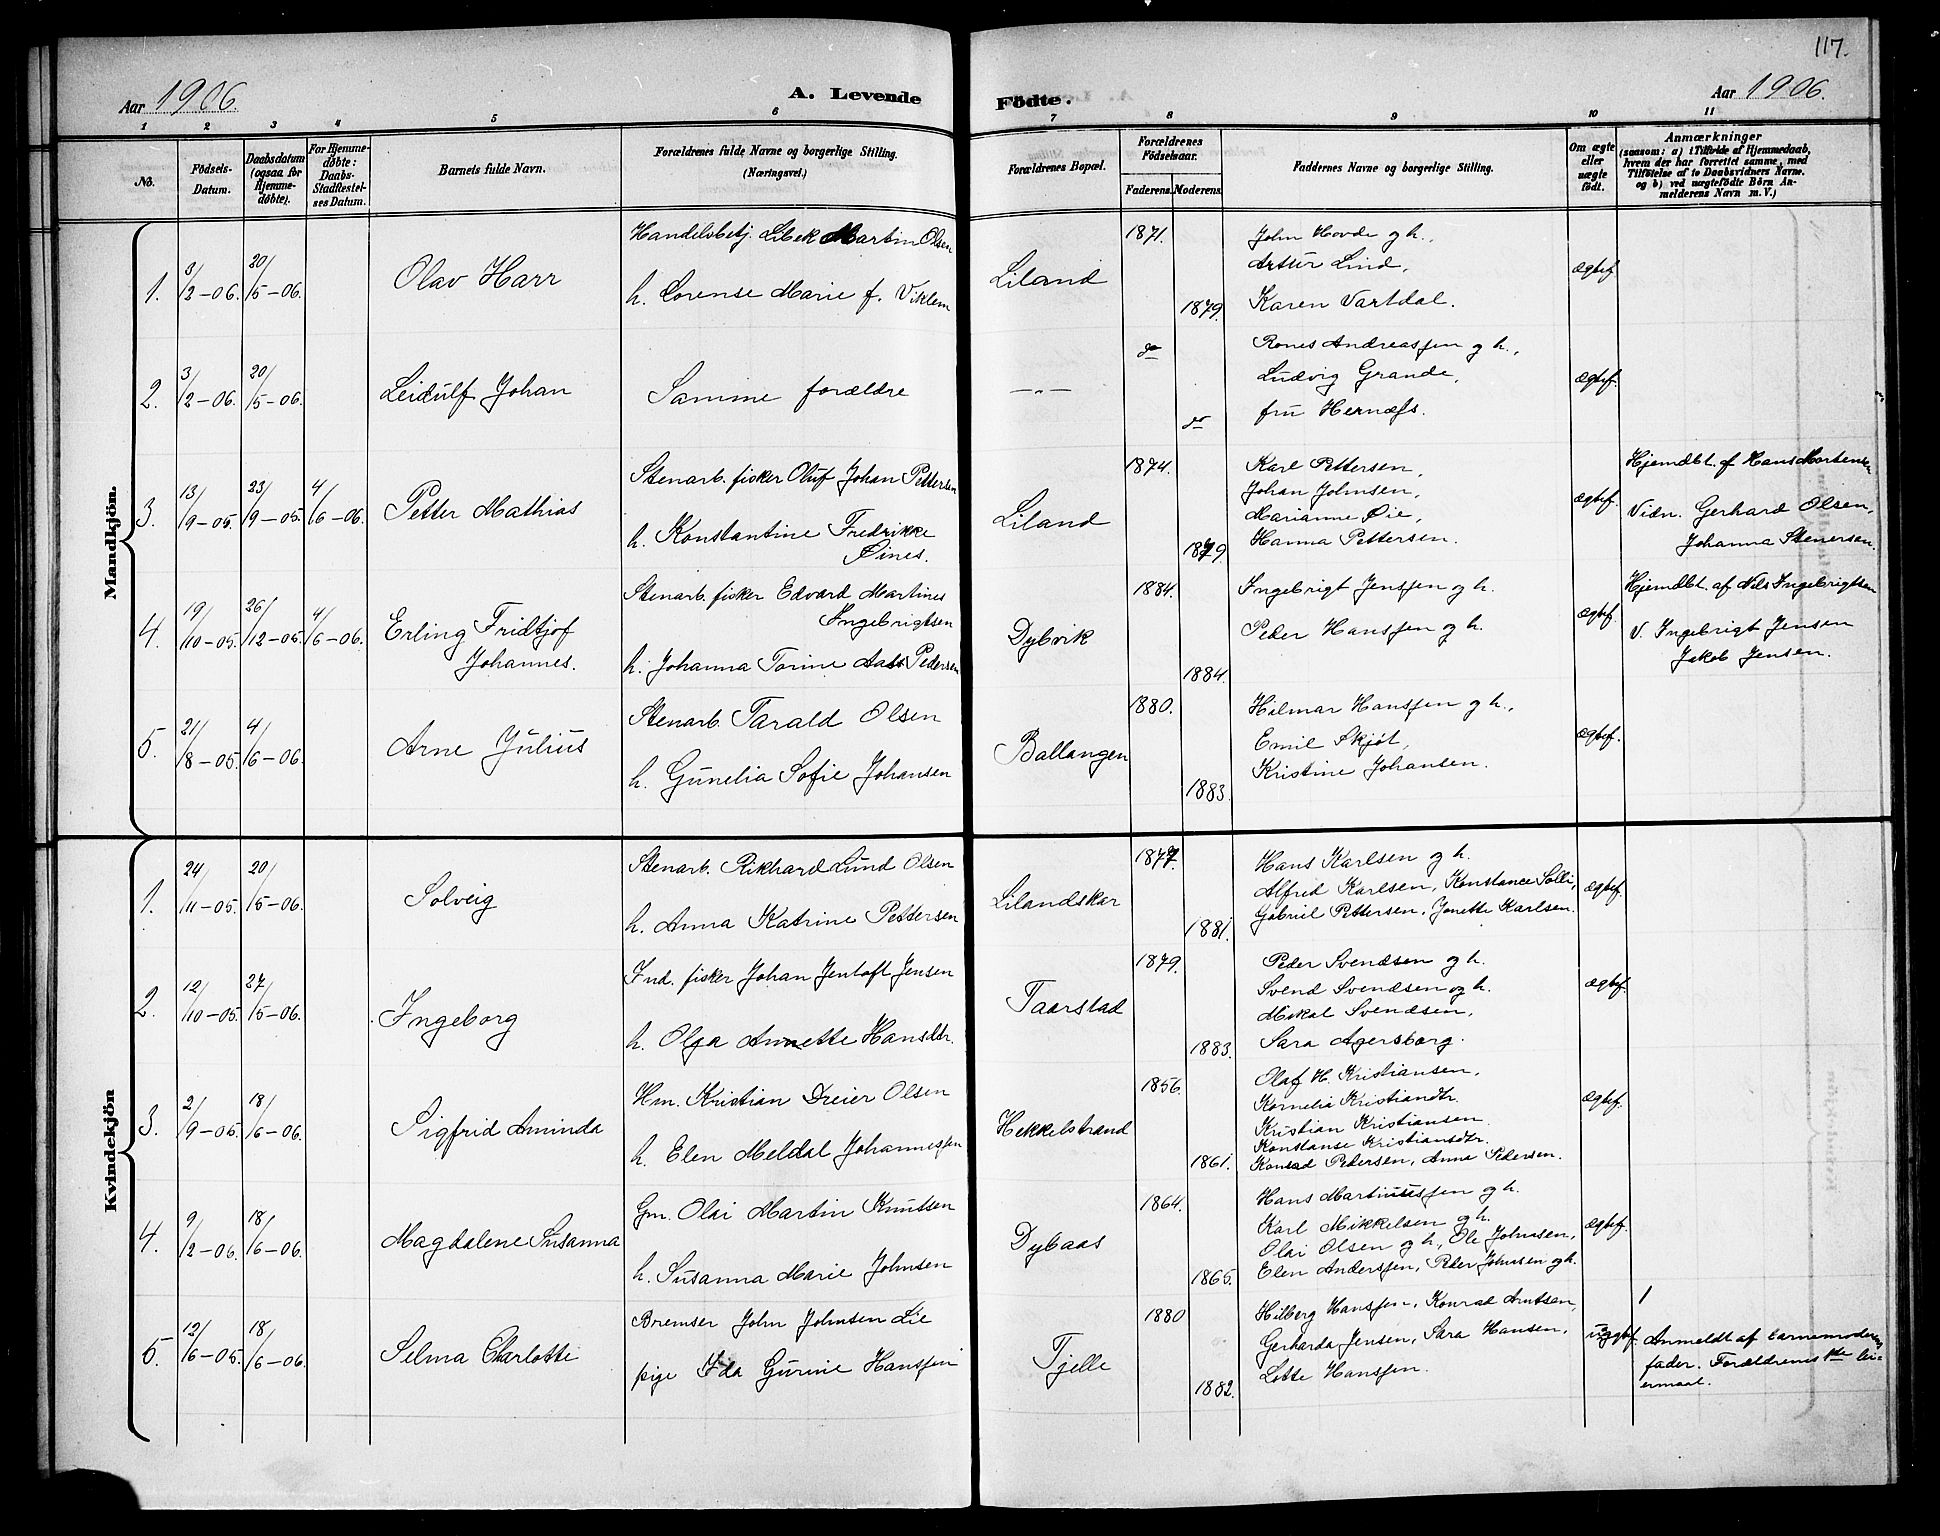 117.
Aar 1906.
A. Levende
Födte.
Aar 1906.
1 2 3 4 5 6 7 8 9 10 11
No.
Födsels-
Datum.
Daabsdatum
(ogsaa for
Hjemme-
døbte).
For Hjemme-
døbte:
Daabs-
Stadfæstel-
ses Datum.
Barnets fulde Navn.
Forældrenes fulde Navne og borgerlige Stilling.
(Næringsvei.)
Forældrenes Bopæl.
Forældrenes
Födselsaar.
Faderens. Moderens.
Faddernes Navne og borgerlige Stilling.
Om ægte
eller
uægte
födt.
Anmærkninger
(saasom: a) i Tilfælde af Hjemmedaab,
hvem der har forrettet samme, med
Tilföielse af to Daabsvidners Navne.
og b) ved uægtefödte Börn An-
melderens Navn m. V.)
Mandkjön.
1. 3/2-06. 20/5-06. Olav Harr
Handelsbetj. Libek Martin Olsen
h. Lorense Marie f. Viklem
Liland
1871.
1879.
John Hovde og h.,
Arttur Lind,
Karen Vartdal.
ægtef.
2. 3/2-06. 20/5-06. Leidulf Johan
Samme forældre
— „ —
do
do
Rones Andreassen og h.,
Ludvig Grande,
fru Hernæss.
ægtef.
3. 13/9-05. 23/9-05. 4/6-06. Petter Mathias
Stenarb. fisker Oluf Johan Pettersen
h. Konstantine Fredrikke
Øines.
Liland
1874.
1879.
Karl Pettersen,
Johan Johnsen,
Marianne Øie,
Hanna Pettersen.
ægtef.
Hjemdbt. af Hans Mortensen
Vidn. Gerhard Olsen,
Johanna Stenersen.
4. 19/10-05. 26/12-05. 4/6-06. Erling Fridtjof
Johannes.
Stenarb. fisker Edvard Martines
Ingebrigtsen
h. Johanna Torine Aass Pedersen
Dybvik
1884.
1884.
Ingebrigt Jenssen og h.
Peder Hanssen og h.
ægtef.
Hjemdbt. af Nils Ingebrigtsen
V. Ingebrigt Jensen
Jakob Jensen.
5. 21/8-05. 4/6-06. Arne Julius
Stenarb. Tarald Olsen
h. Gunelia Sofie Johansen
Ballangen
1880.
1883.
Hilmar Hanssen og h.,
Emil Skjöt,
Kristine Johansen.
ægtef.
Kvindekjön
1. 24/11-05. 20/5-06. Solveig
Stenarb. Rikhard Lund Olsen
h. Anna Katrine Pettersen
Lilandskar
1877.
1881.
Hans Karlsen og h.
Alfred Karlsen, Konstance Solli,
Gabriel Pettersen, Jonette Karlsen.
ægtef.
2. 12/10-05. 27/5-06. Ingeborg
Ind. fisker Johan Jentoft Jensen
h. Olga Annette Hansdtr.
Taarstad
1879.
1883.
Peder Svendsen og h.
Svend Svendsen og h.
Mikal Svendsen,
Sara Agersborg.
ægtef.
3. 2/9-05. 18/6-06. Sigfrid Aminda
Hm. Kristian Dreier Olsen
h. Elen Meldal Johannessen
Hekkelstrand
1856.
1861.
Olaf H. Kristiansen,
Kornelia Kristiandtr.
Kristian Kristiansen
Konstanse Kristiansdtr.
Konrad Pedersen, Anna Pedersen.
ægtef.
4. 9/2-06. 18/6-06. Magdalene Susanna
Gm. Olai Martin Knutsen
h. Susanna Marie Johnsen
Dybaas
1864.
1865.
Hans Martinussen og h.
Karl Mikkelsen og h.
Olai Olsen og h., Ole Johnsen,
Elen Anderssen, Peder Johnsen og h.
ægtef.
5. 12/6-05. 18/6-06. Selma Charlotte
Bremser John Johnsen Lie
pige Ida Gurine Hanssen
Tjelle
1880
1882.
Hilberg Hanssen, Konrad Arntsen,
Gerharda Jensen, Sara Hansen,
Lotte Hanssen.
uægtef.
Anmeldt af barnemoderens
fader. Forældrenes 1ste lei-
ermaal.